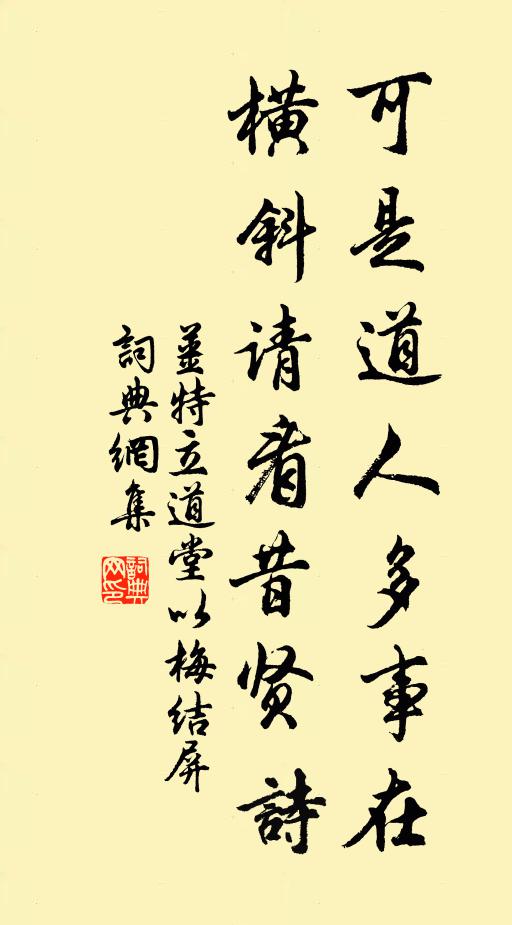 可是道人多事在
橫斜请看昔贤詩
姜特立道堂以梅结屏
詞典網集
詞典网印